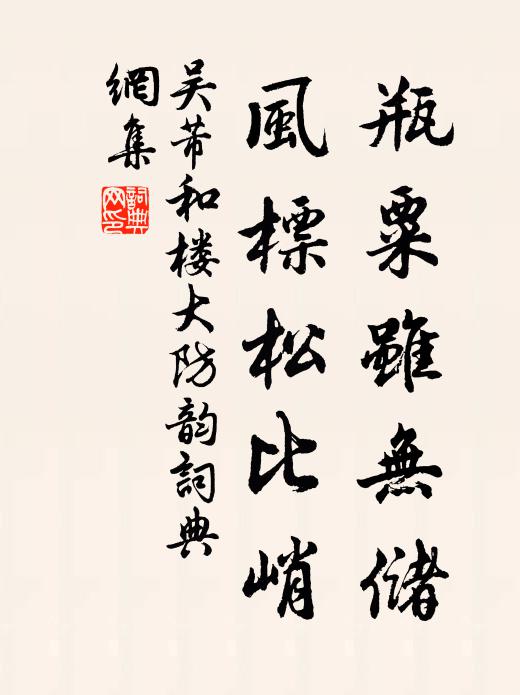 瓶粟雖無儲
風標松比峭
吴芾和楼大防韵詞典
網集
詞典網印